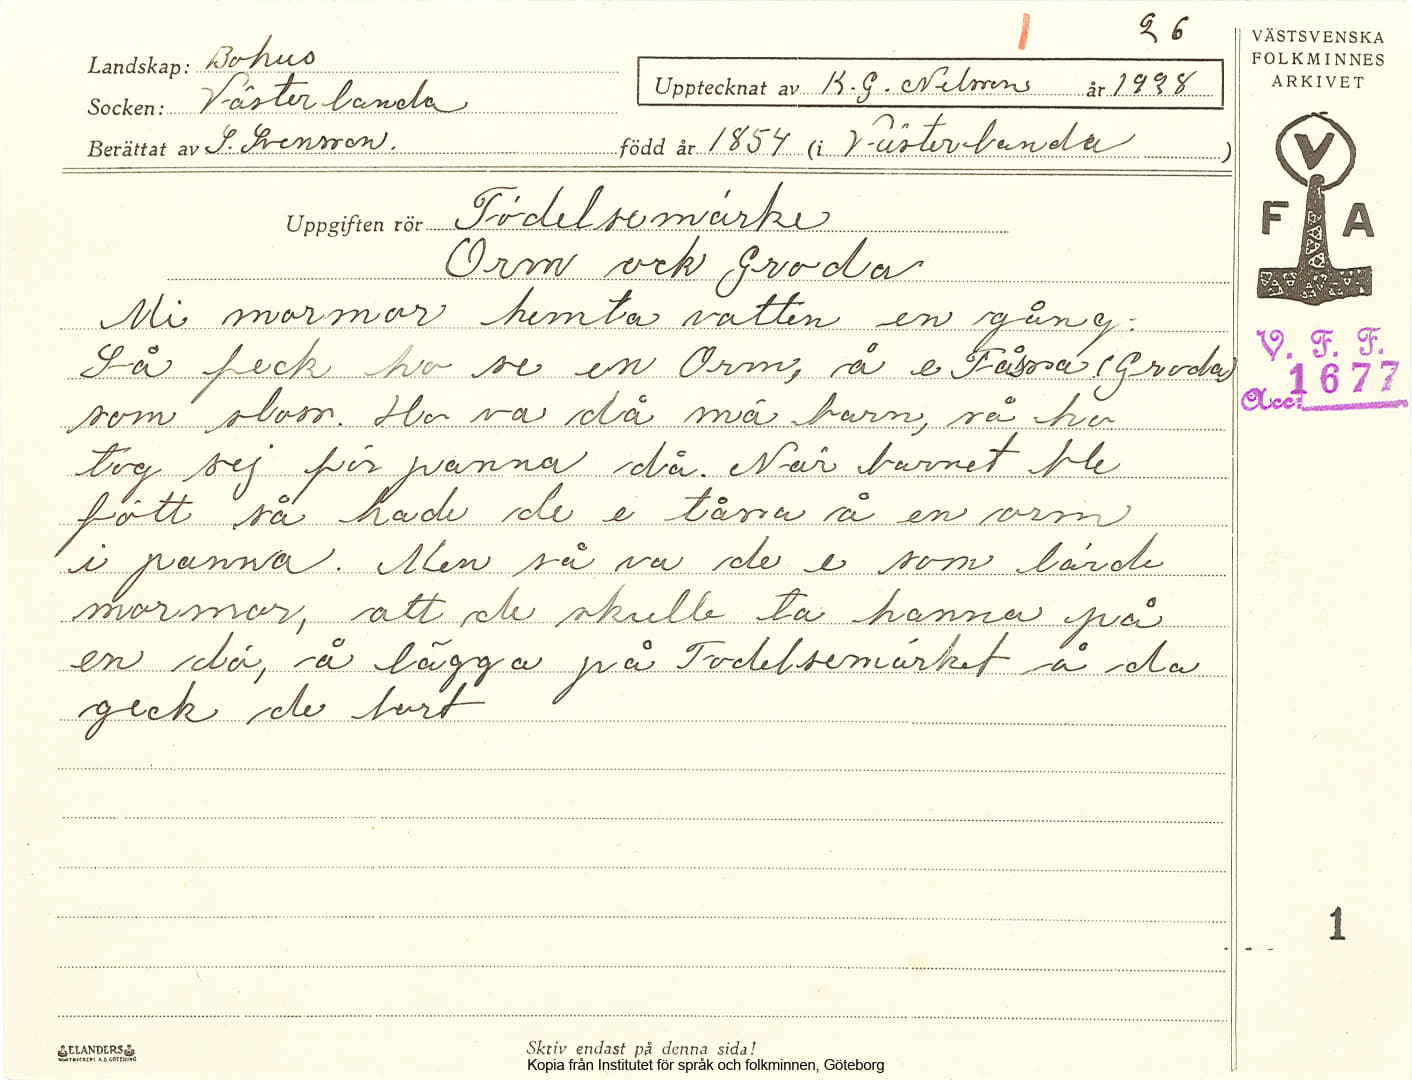 26
VÄSTSVENSKA
FOLKMINNES
ARKIVET
Landskap: Bohus
Upptecknat av K. G. Nelsson år 1928
Socken: Västerlanda
Berättat av S. Svensson. född år 1854 (i Västerlanda )
V
F A
Uppgiften rör Födelsemärke
Orm ock Groda
Mi mormor hemta vatten en gång.
Så feck ho se en Orm, å e Tåssa (Groda)
som sloss. Ho va då mä barn, så ho
tog sej för panna då. När barnet ble
fött så hade de e tåssa å en orm
i panna. Men så va de e som lärde
mormor, att de skulle ta hanna på
en dö, å lägga på Fodelsemärket å da
geck de bort
V. F. F.
Acc: 1677
1
ELANDERS
Skriv endast på denna sida!
Kopia från Institutet för språk och folkminnen, Göteborg